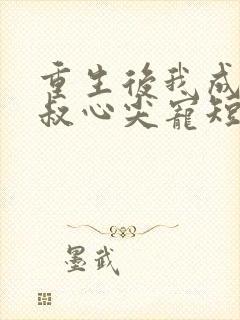 重生後我成
叔心尖寵短
墨武